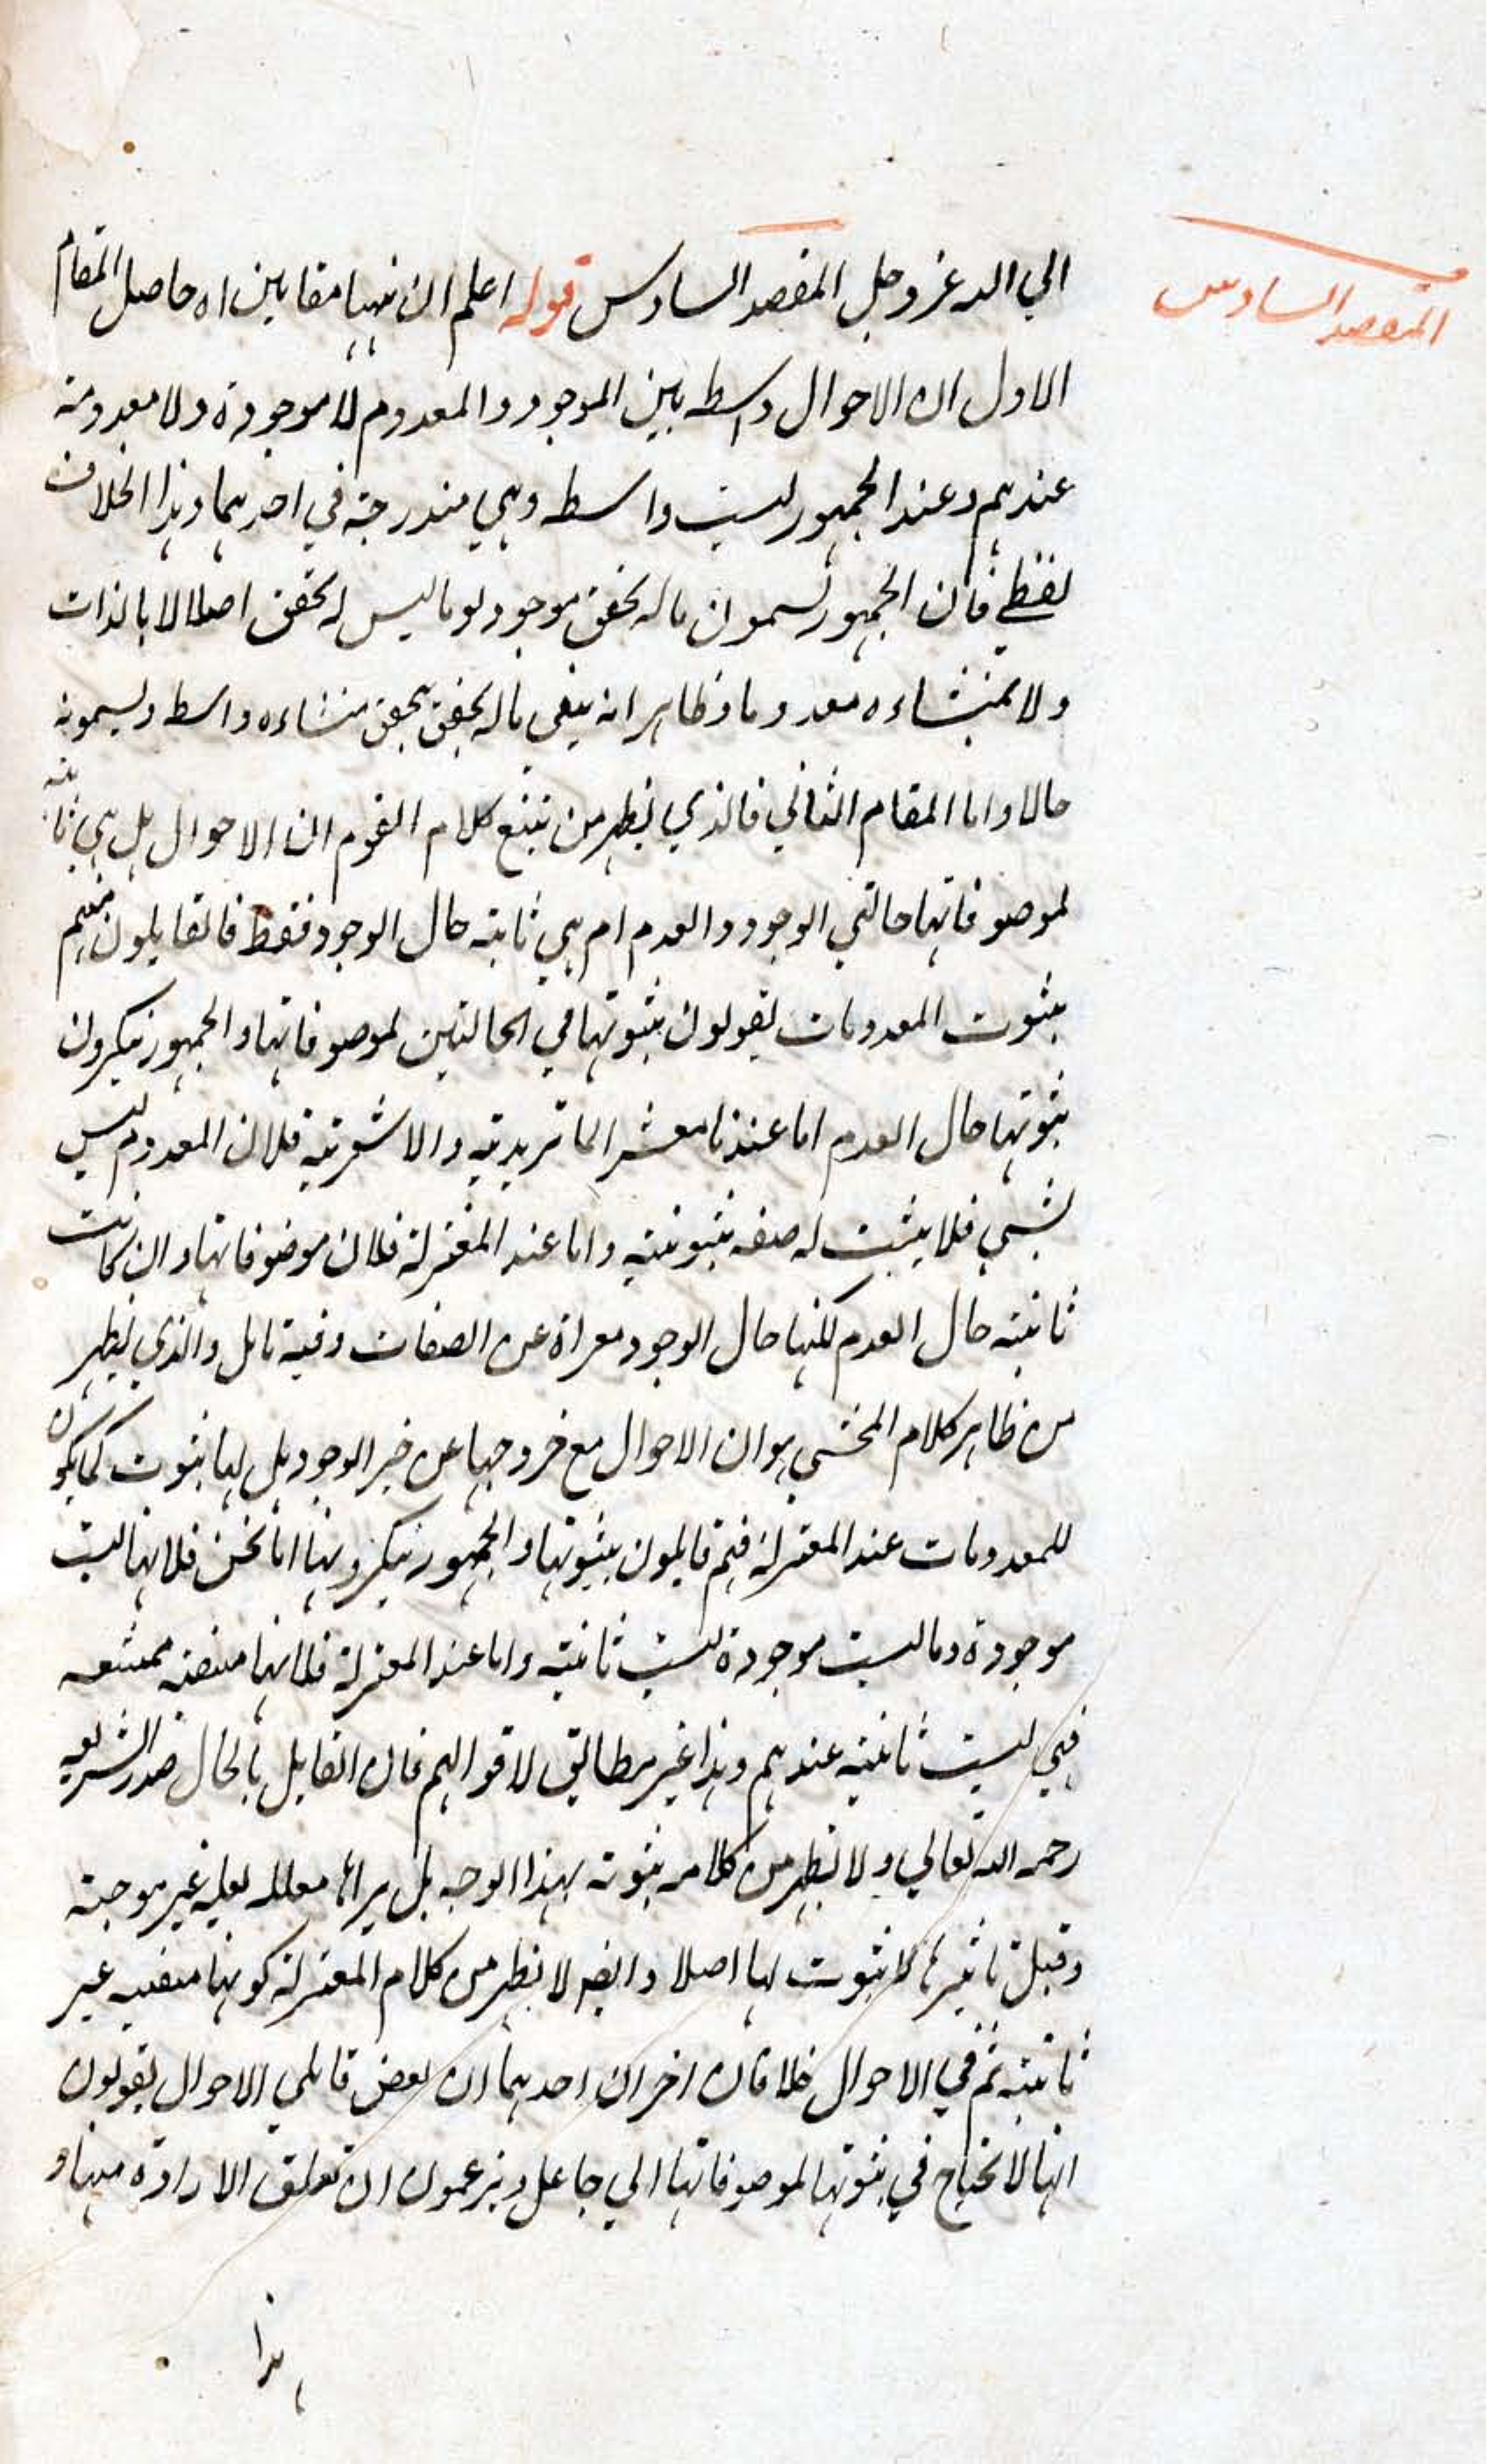 المقصد السادس
الي الله عز وجل المقصد السادس قوله اعلم ان ههنا مقامين اه حاصل المقام
الاول ان الاحوال واسطه بين الموجود والمعدوم لا موجودة ولا معدومة
عندهم وعند الجمهور ليست واسطه وهي مندرجة في احدهما وهذا الخلاف
لفظي فان الجمهور يسمون ما له تحقق موجودا وما ليس له تحقق اصلا لا بالذات
ولا بمنشاءه معدوما وظاهر انه يبقي ما له تحقق بتحقق منشاءه واسط ويسمونه
حالا واما المقام الثاني فالذي يظهر من تتبع كلام القوم ان الاحوال هل هي ثابته
لموصوفاتها حالتي الوجود والعدم ام هي ثابته حال الوجود فقط فالقايلون منهم
بثبوت المعدومات يقولون بثبوتها في الحالتين لموصوفاتها والجمهور ينكرون
ثبوتها حال العدم اما عندنا معشر الماتريدية والاشعرية فلان المعدوم ليس
بشي فلا يثبت له صفه ثبوتية واما عند المعتزلة فلان موصوفاتها وان كانت
ثابته حال العدم لكنها حال الوجود معراة عن الصفات وفيه تامل والذي يظهر
من ظاهر كلام المحشي هو ان الاحوال مع خروجها عن خير الوجود هل لها ثبوت كما يكون
للمعدومات عند المعتزلة فهم قايلون بثبوتها والجمهور ينكرونها اما نحن فلانها ليست
موجودة وما ليست موجودة ليست ثابتة واما عند المعتزلة فلانها ممتنعه
فهي ليست ثابتة عندهم وهذا غير مطابق لاقوالهم فان القايل بالحال صدر الشريعه
رحمه الله تعالي ولا يظهر من كلامه ثبوته بهذا الوجه بل يراها معلله بعلة غير موجبة
وقبل تاثيرها لا ثبوت لها اصلا وايضا لا يظهر من كلام المعتزلة كونها منفيه غير
ثابتة ثم في الاحوال خلافان اخران احدهما ان بعض قايلي الاحوال يقولون
انها لا تحتاج في ثبوتها لموصوفاتها الي جاعل ويزعمون ان تعلق الارادة منها و
هذا